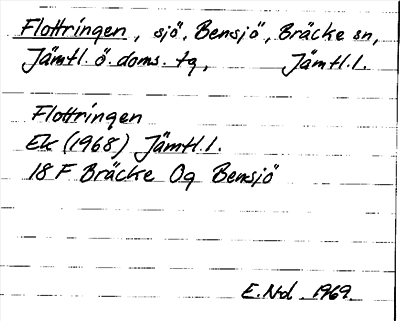 Flottringen, sjö, Bensjö, Bräcke sn,
Jämtl. ö. doms. tg, Jämtl.l.
Flottringen
Ek (1968) Jämtl.l.
18 F Bräcke Og Bensjö
E.Nrd 1969